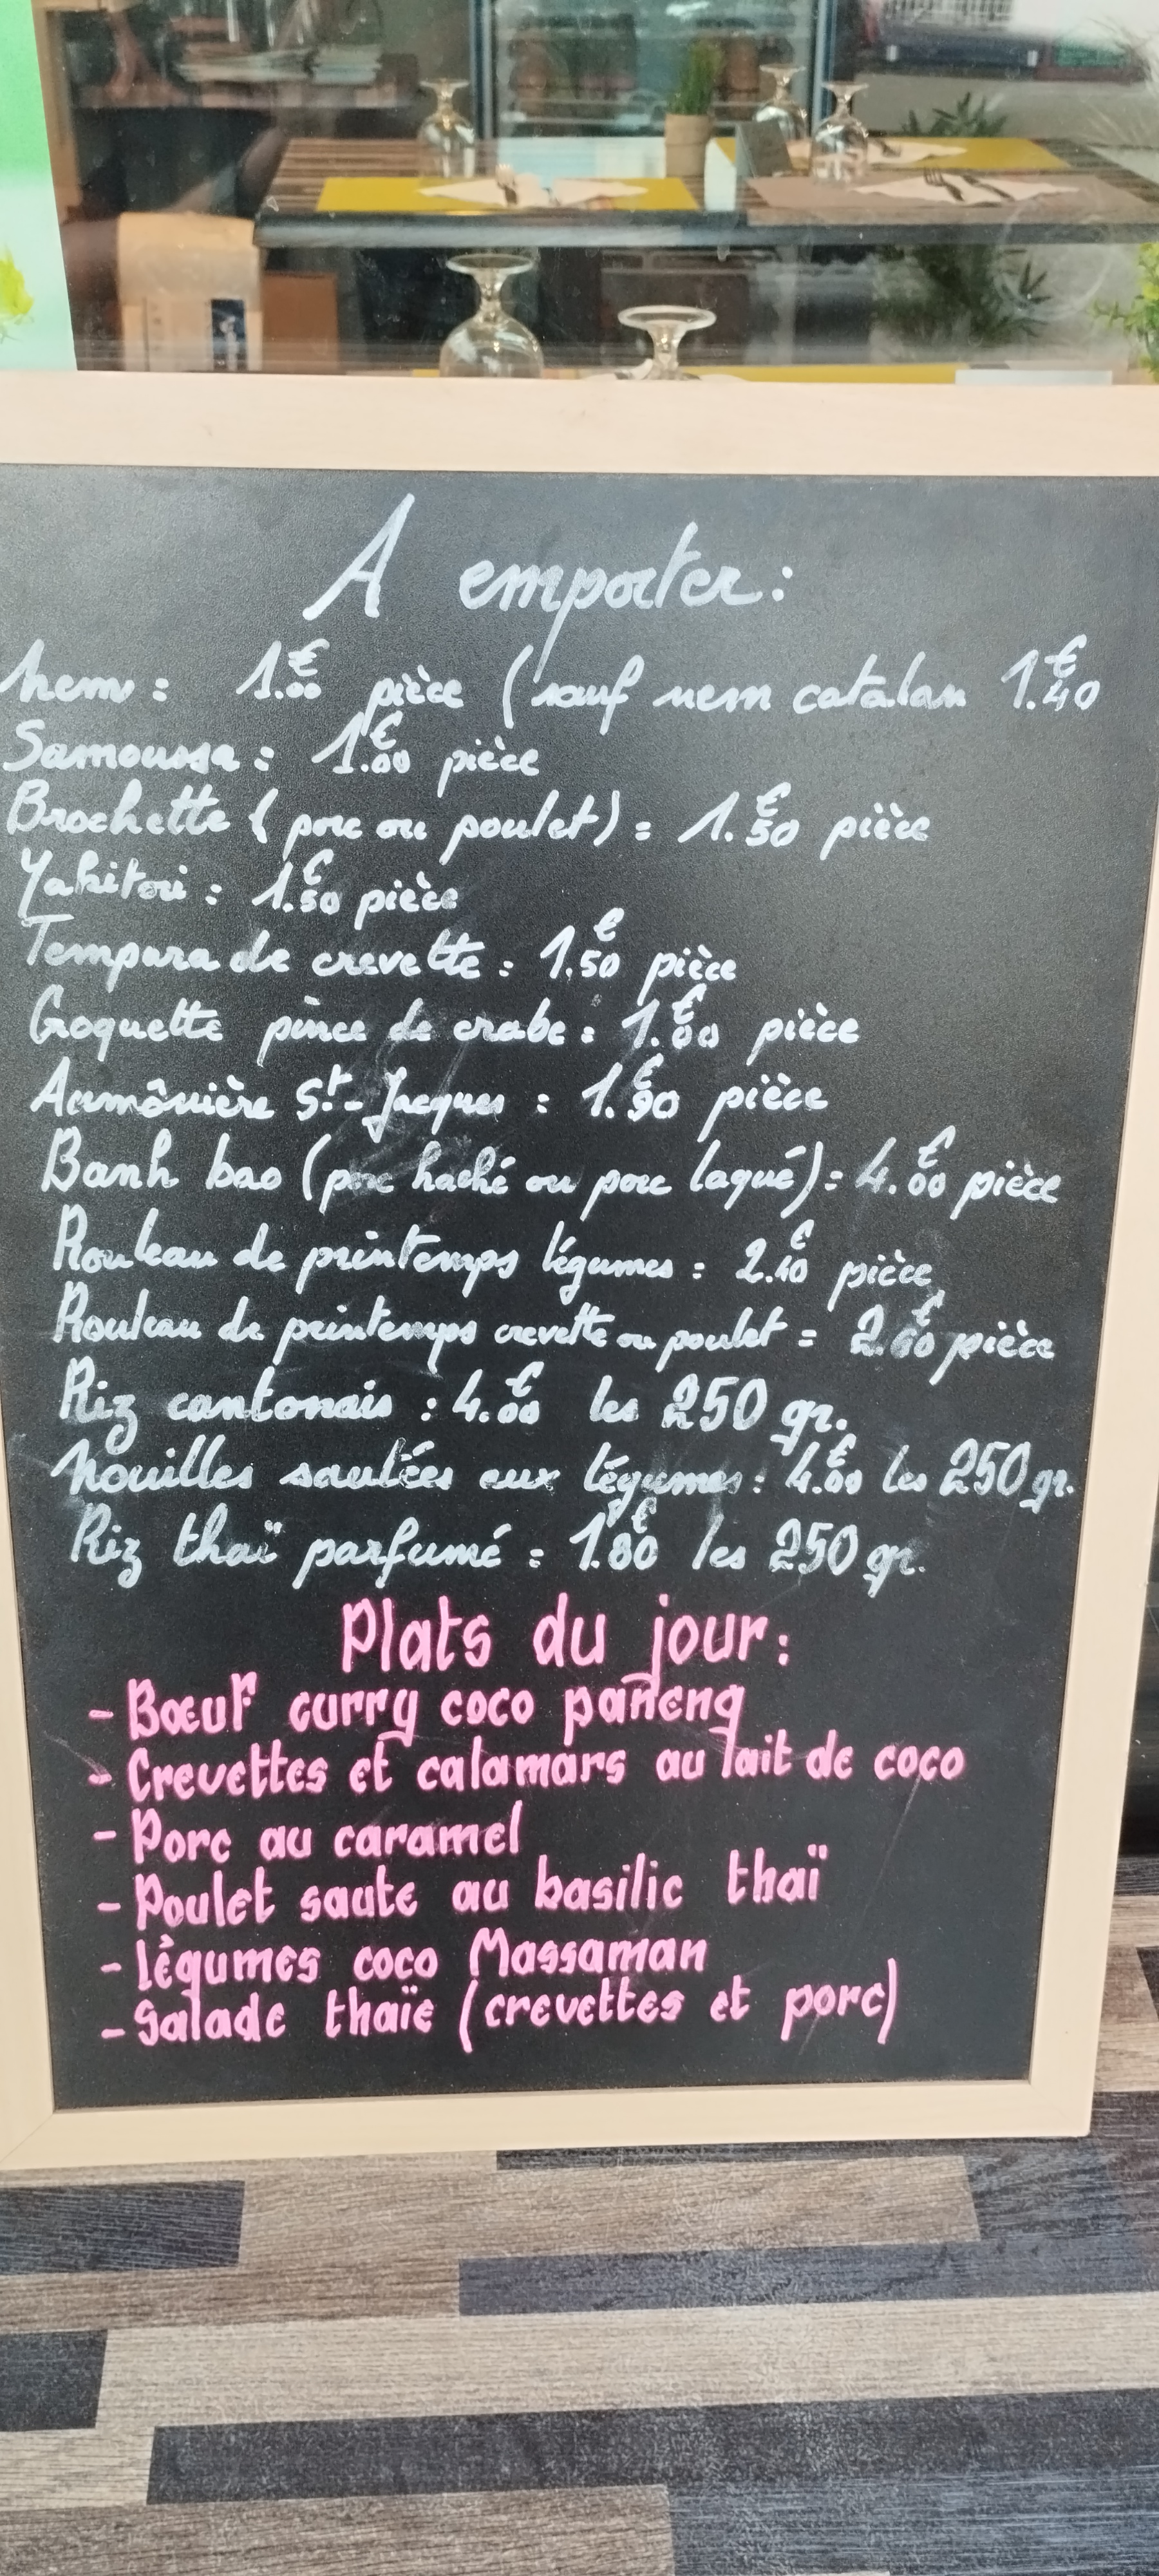 A emporter :
nem : 1.€00 pièce (sauf nem catalan 1.€40
Samoussa : 1.€00 pièce
Brochette (porc ou poulet) : 1.€50 pièce
Yakitori : 1.€50 pièce
Tempura de crevette : 1.€50 pièce
Croquette pince de crabe : 1.€00 pièce
Aumônière St-Jacques : 1.€90 pièce
Banh bao (porc haché ou porc laqué) : 4.€00 pièce
Rouleau de printemps légumes : 2.€40 pièce
Rouleau de printemps crevette ou poulet : 2.€60 pièce
Riz cantonais : 4.€00 les 250 gr.
nouilles sautées aux légumes : 4.€00 les 250 gr.
Riz thaï parfumé : 1.€80 les 250 gr.
Plats du jour :
- Bœuf curry coco paneng
- Crevettes et calamars au lait de coco
- Porc au caramel
- Poulet saute au basilic thaï
- légumes coco Massaman
- Salade thaïe (crevettes et porc)